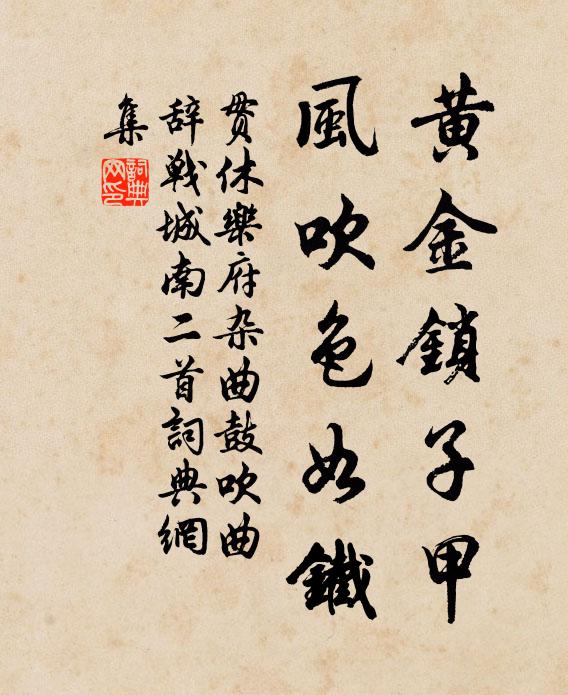 黄金鎖子甲
風吹色如鐵
貫休樂府杂曲鼓吹曲
辞戰城南二首詞典網
集
詞典
网印